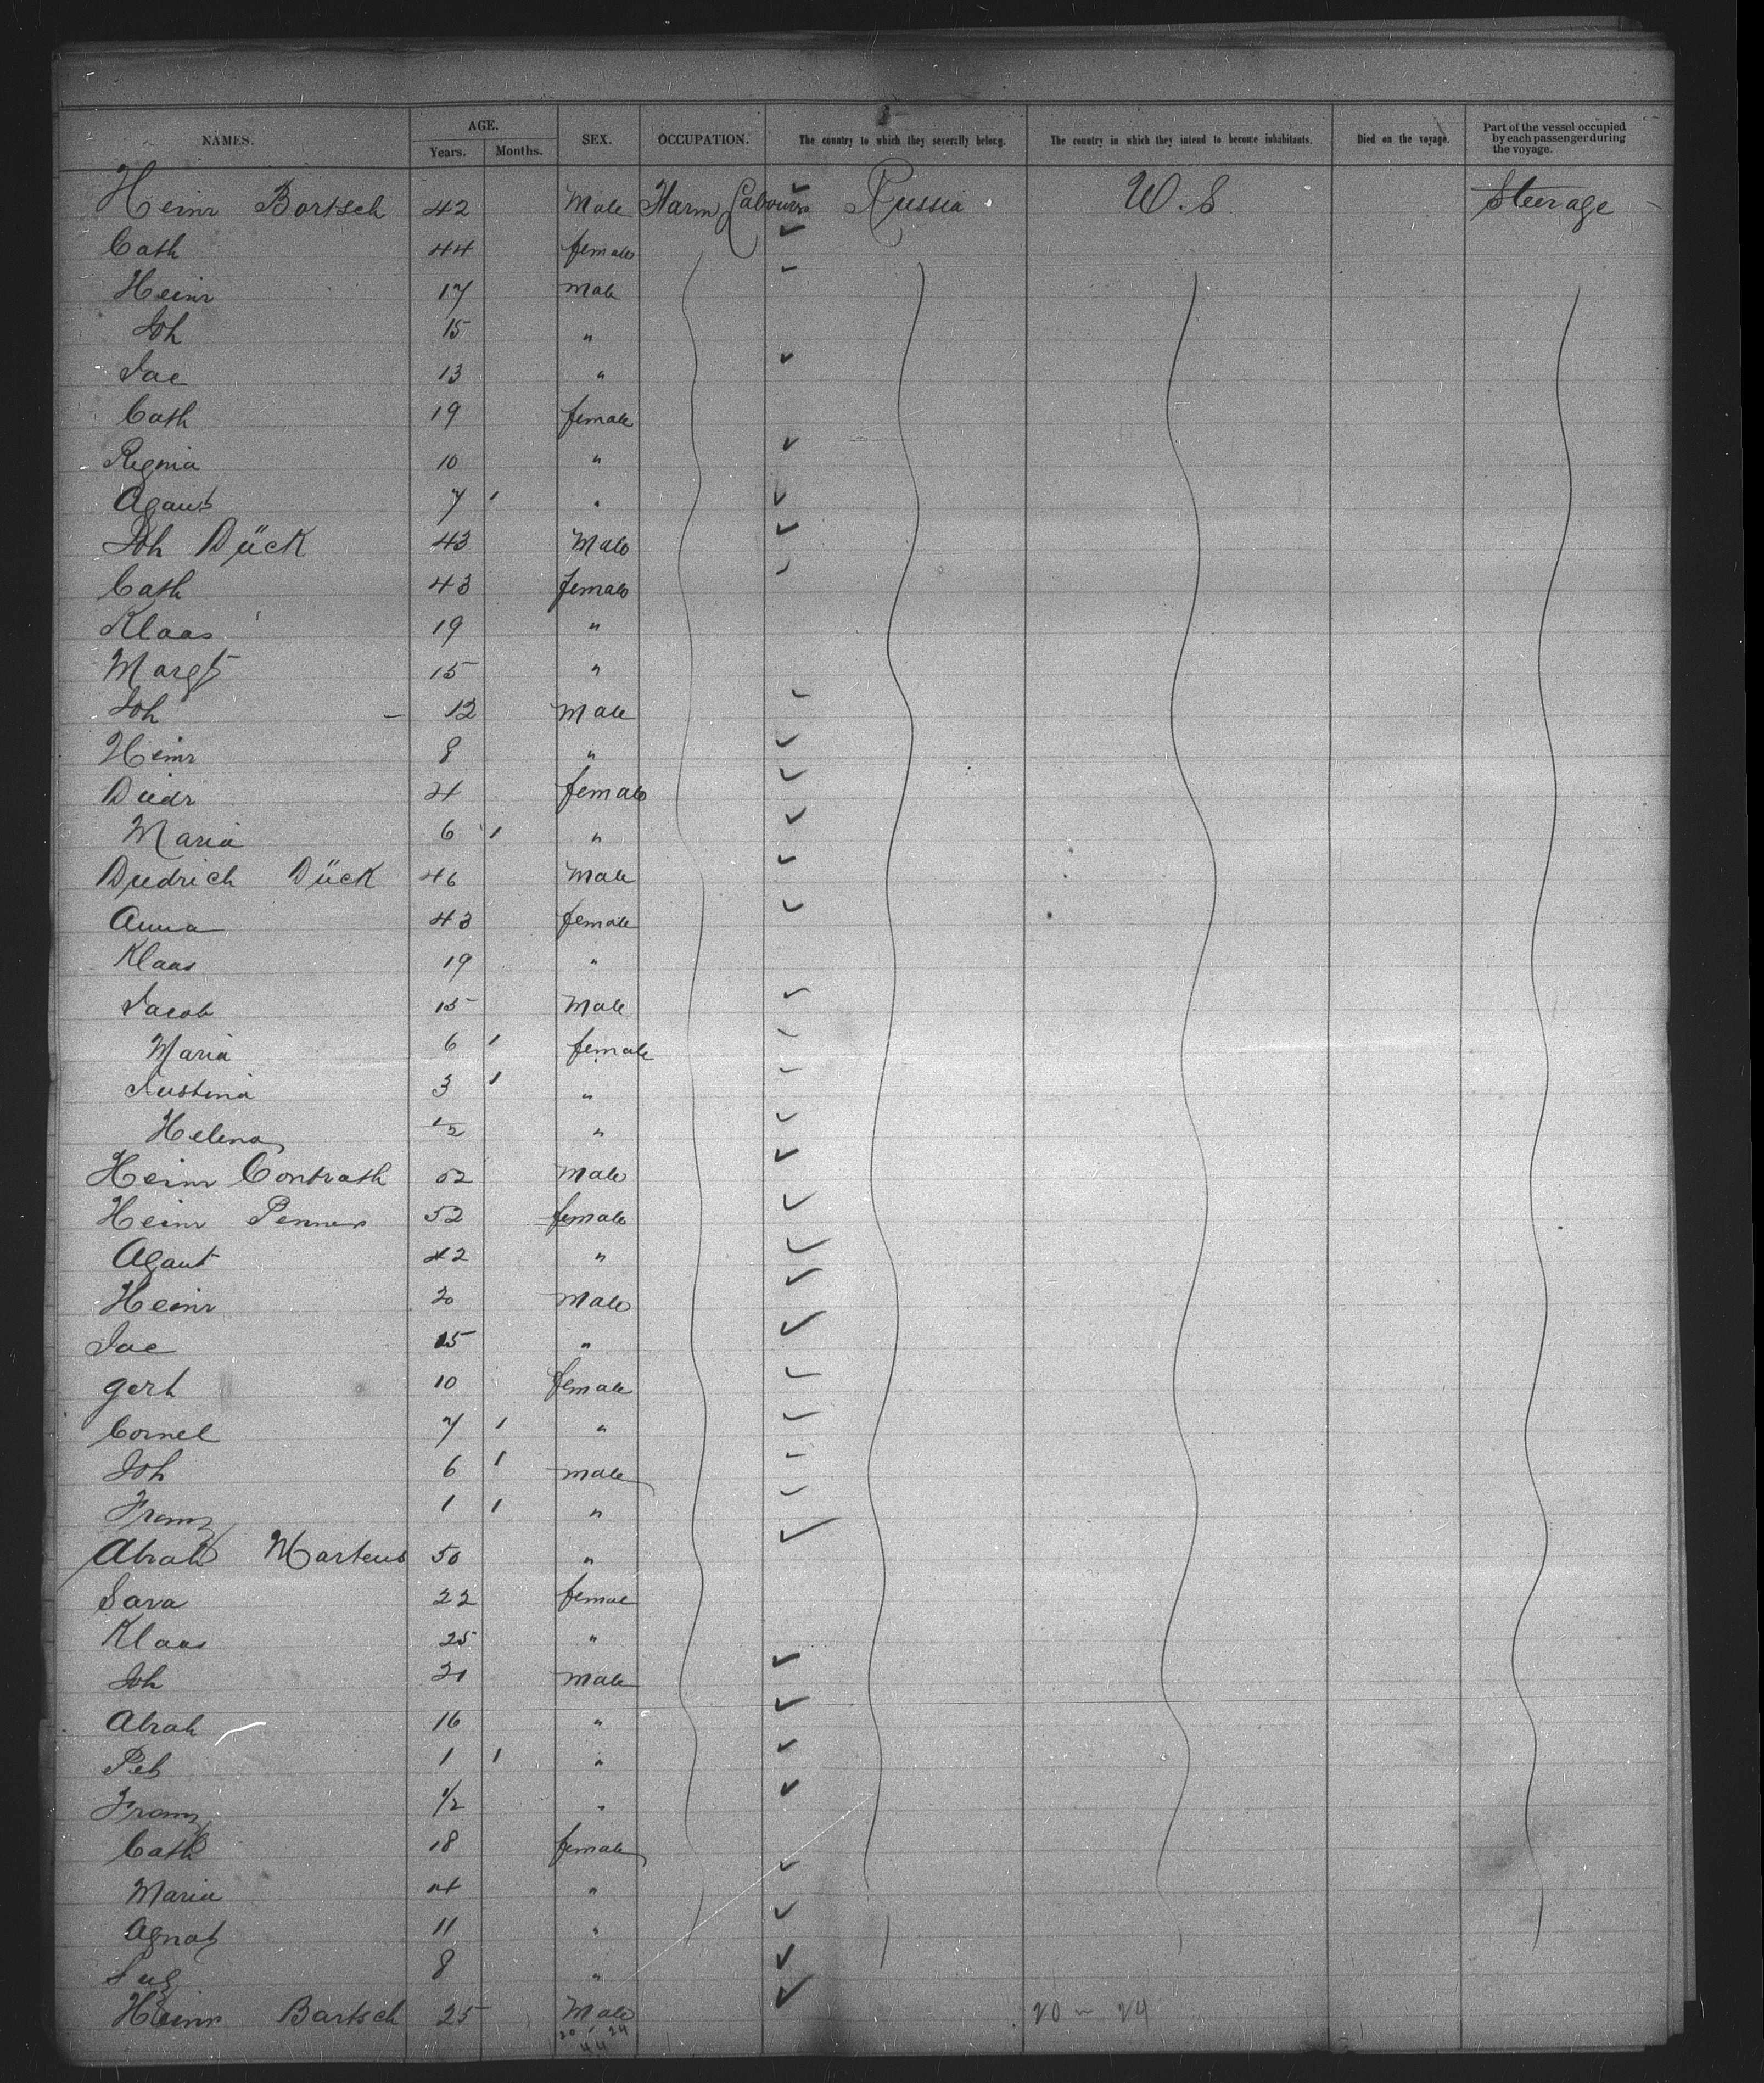 NAMES. AGE. Years. Months. SEX. OCCUPATION. The country to which they severally belong. The country in which they intend to become inhabitants. Died on the voyage. Part of the vessel occupied by each passenger during the voyage.
Heinr Bartsch 42 Male Farm Labourers Russia U.S. Steerage
Cath 44 female
Heinr 17 male
Joh 15 "
Jac 13 "
Cath 19 female
Regina 10 "
Agant 7 1 "
Joh Dück 43 Male
Cath 43 female
Klaas 19 "
Margt 15 "
Joh 12 Male
Heinr 8 "
Diedr 4 female
Maria 6 1 "
Diedrich Dück 46 Male
Anna 43 female
Klaas 19 "
Jacob 15 Male
Maria 6 1 female
Justina 3 1 "
Helena 1/2 "
Heinr Contrath 52 Male
Heinr Penner 52 female
Agant 42 "
Heinr 20 Male
Jac 15 "
Gerh 10 female
Cornel 7 1 "
Joh 6 1 male
Franz 1 1 "
Abrah Martens 50 "
Sara 22 female
Klaas 25 "
Joh 21 Male
Abrah 16 "
Pet 1 1 "
Franz 1/2 "
Cath 18 female
Maria 4 "
Agnat 11 "
8 "
Heinr Bartsch 25 Male
20 24
44
20 24